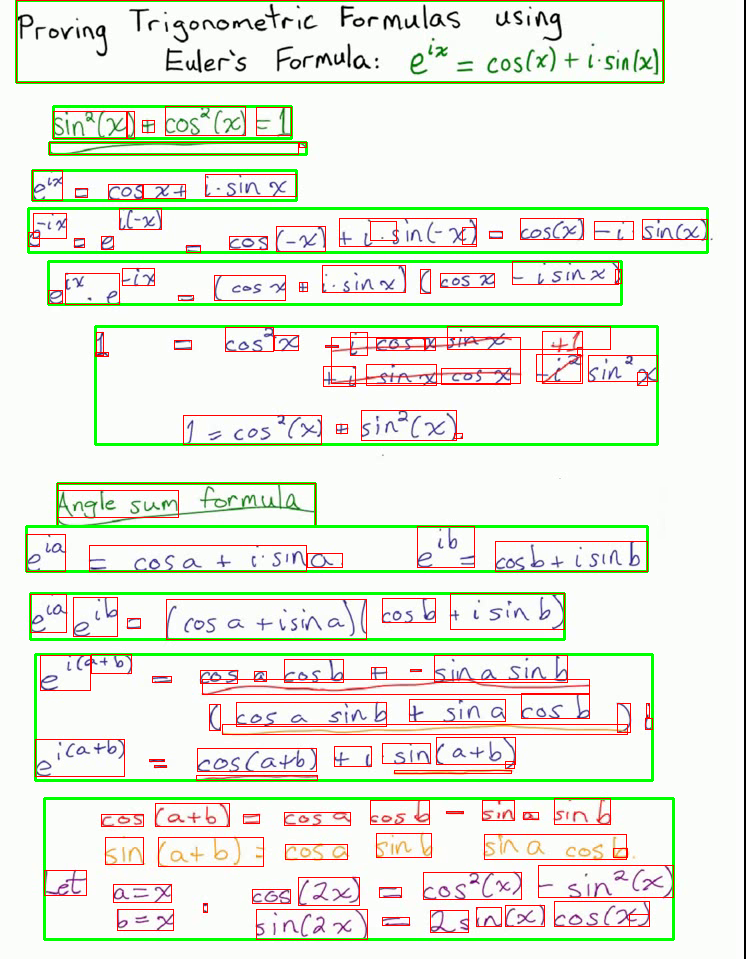 Proving Trigonometric Formulas using
Euler's Formula: e^{ix} = cos(x) + i·sin(x)
sin²(x) + cos²(x) = 1
e^{ix} = cos x + i·sin x
e^{-ix} = e^{i(-x)} = cos(-x) + i·sin(-x) = cos(x) - i sin(x).
e^{ix} · e^{-ix} = (cos x + i·sin x)(cos x - i sin x)
1 = cos²x - i cos x sin x +1
+ i sin x cos x - i² sin²x
1 = cos²(x) + sin²(x).
Angle sum formula
e^{ia} = cos a + i·sin a e^{ib} = cos b + i sin b
e^{ia} e^{ib} = (cos a + i sin a)(cos b + i sin b)
e^{i(a+b)} = cos a cos b + - sin a sin b
(cos a sin b + sin a cos b) i
e^{i(a+b)} = cos(a+b) + i sin(a+b)
cos(a+b) = cos a cos b - sin a sin b
sin(a+b) = cos a sin b sin a cos b.
Let a=x cos(2x) = cos²(x) - sin²(x)
b=x · sin(2x) = 2sin(x)cos(x)